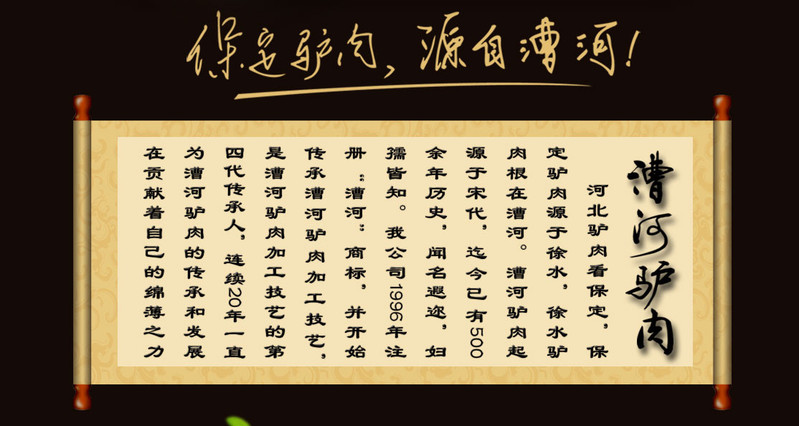 保定驴肉,源自漕河!
漕河驴肉
河北驴肉看保定,保
定驴肉源于徐水,徐水驴
肉根在漕河。漕河驴肉起
源于宋代,迄今已有500
余年历史,闻名遐迩,妇
孺皆知。我公司1996年注
册“漕河”商标,并开始
传承漕河驴肉加工技艺,
是漕河驴肉加工技艺的第
四代传承人,连续20年一直
为漕河驴肉的传承和发展
在贡献着自己的绵薄之力